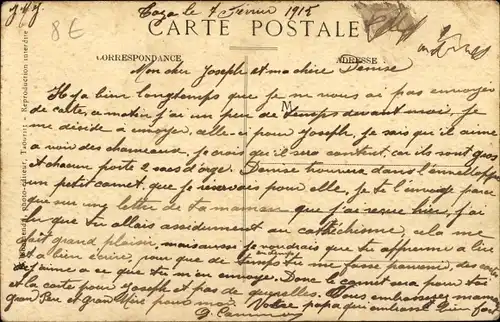 J.M.J.
8€
Taza le 7 Février 1915
CARTE POSTALE
CORRESPONDANCE
ADRESSE
Mon cher Joseph et ma chère Denise
Il y a bien longtemps que je ne vous ai pas envoyer
de carte, ce matin j'ai un peu de temps devant moi, je
me décide à envoyer celle-ci pour Joseph, je sais qu'il aime
a voir des chameaux, je crois qu'il sera content, car ils sont gros
et chacun porte 2 sacs d'orge. Denise trouvera dans l'enveloppe
un petit carnet, que je réservais pour elle, je te l'envoie parce
que sur une lettre de ta maman que j'ai reçue hier, j'ai
lu que tu allais assidument au catéchisme, cela me
fait grand plaisir, mais aussi je voudrais que tu apprenne a lire
et a bien écrire, pour que de temps en temps tu me fasse parvenir, des
a ce que tu m'en envoye. Donc le carnet sera pour toi
et la carte pour Joseph et pas de Vous embrasserez maman
grand Père et grand Mère pour moi. Votre papa qui embrasse bien fort
photo-éditeur, Taourirt - Reproduction interdite